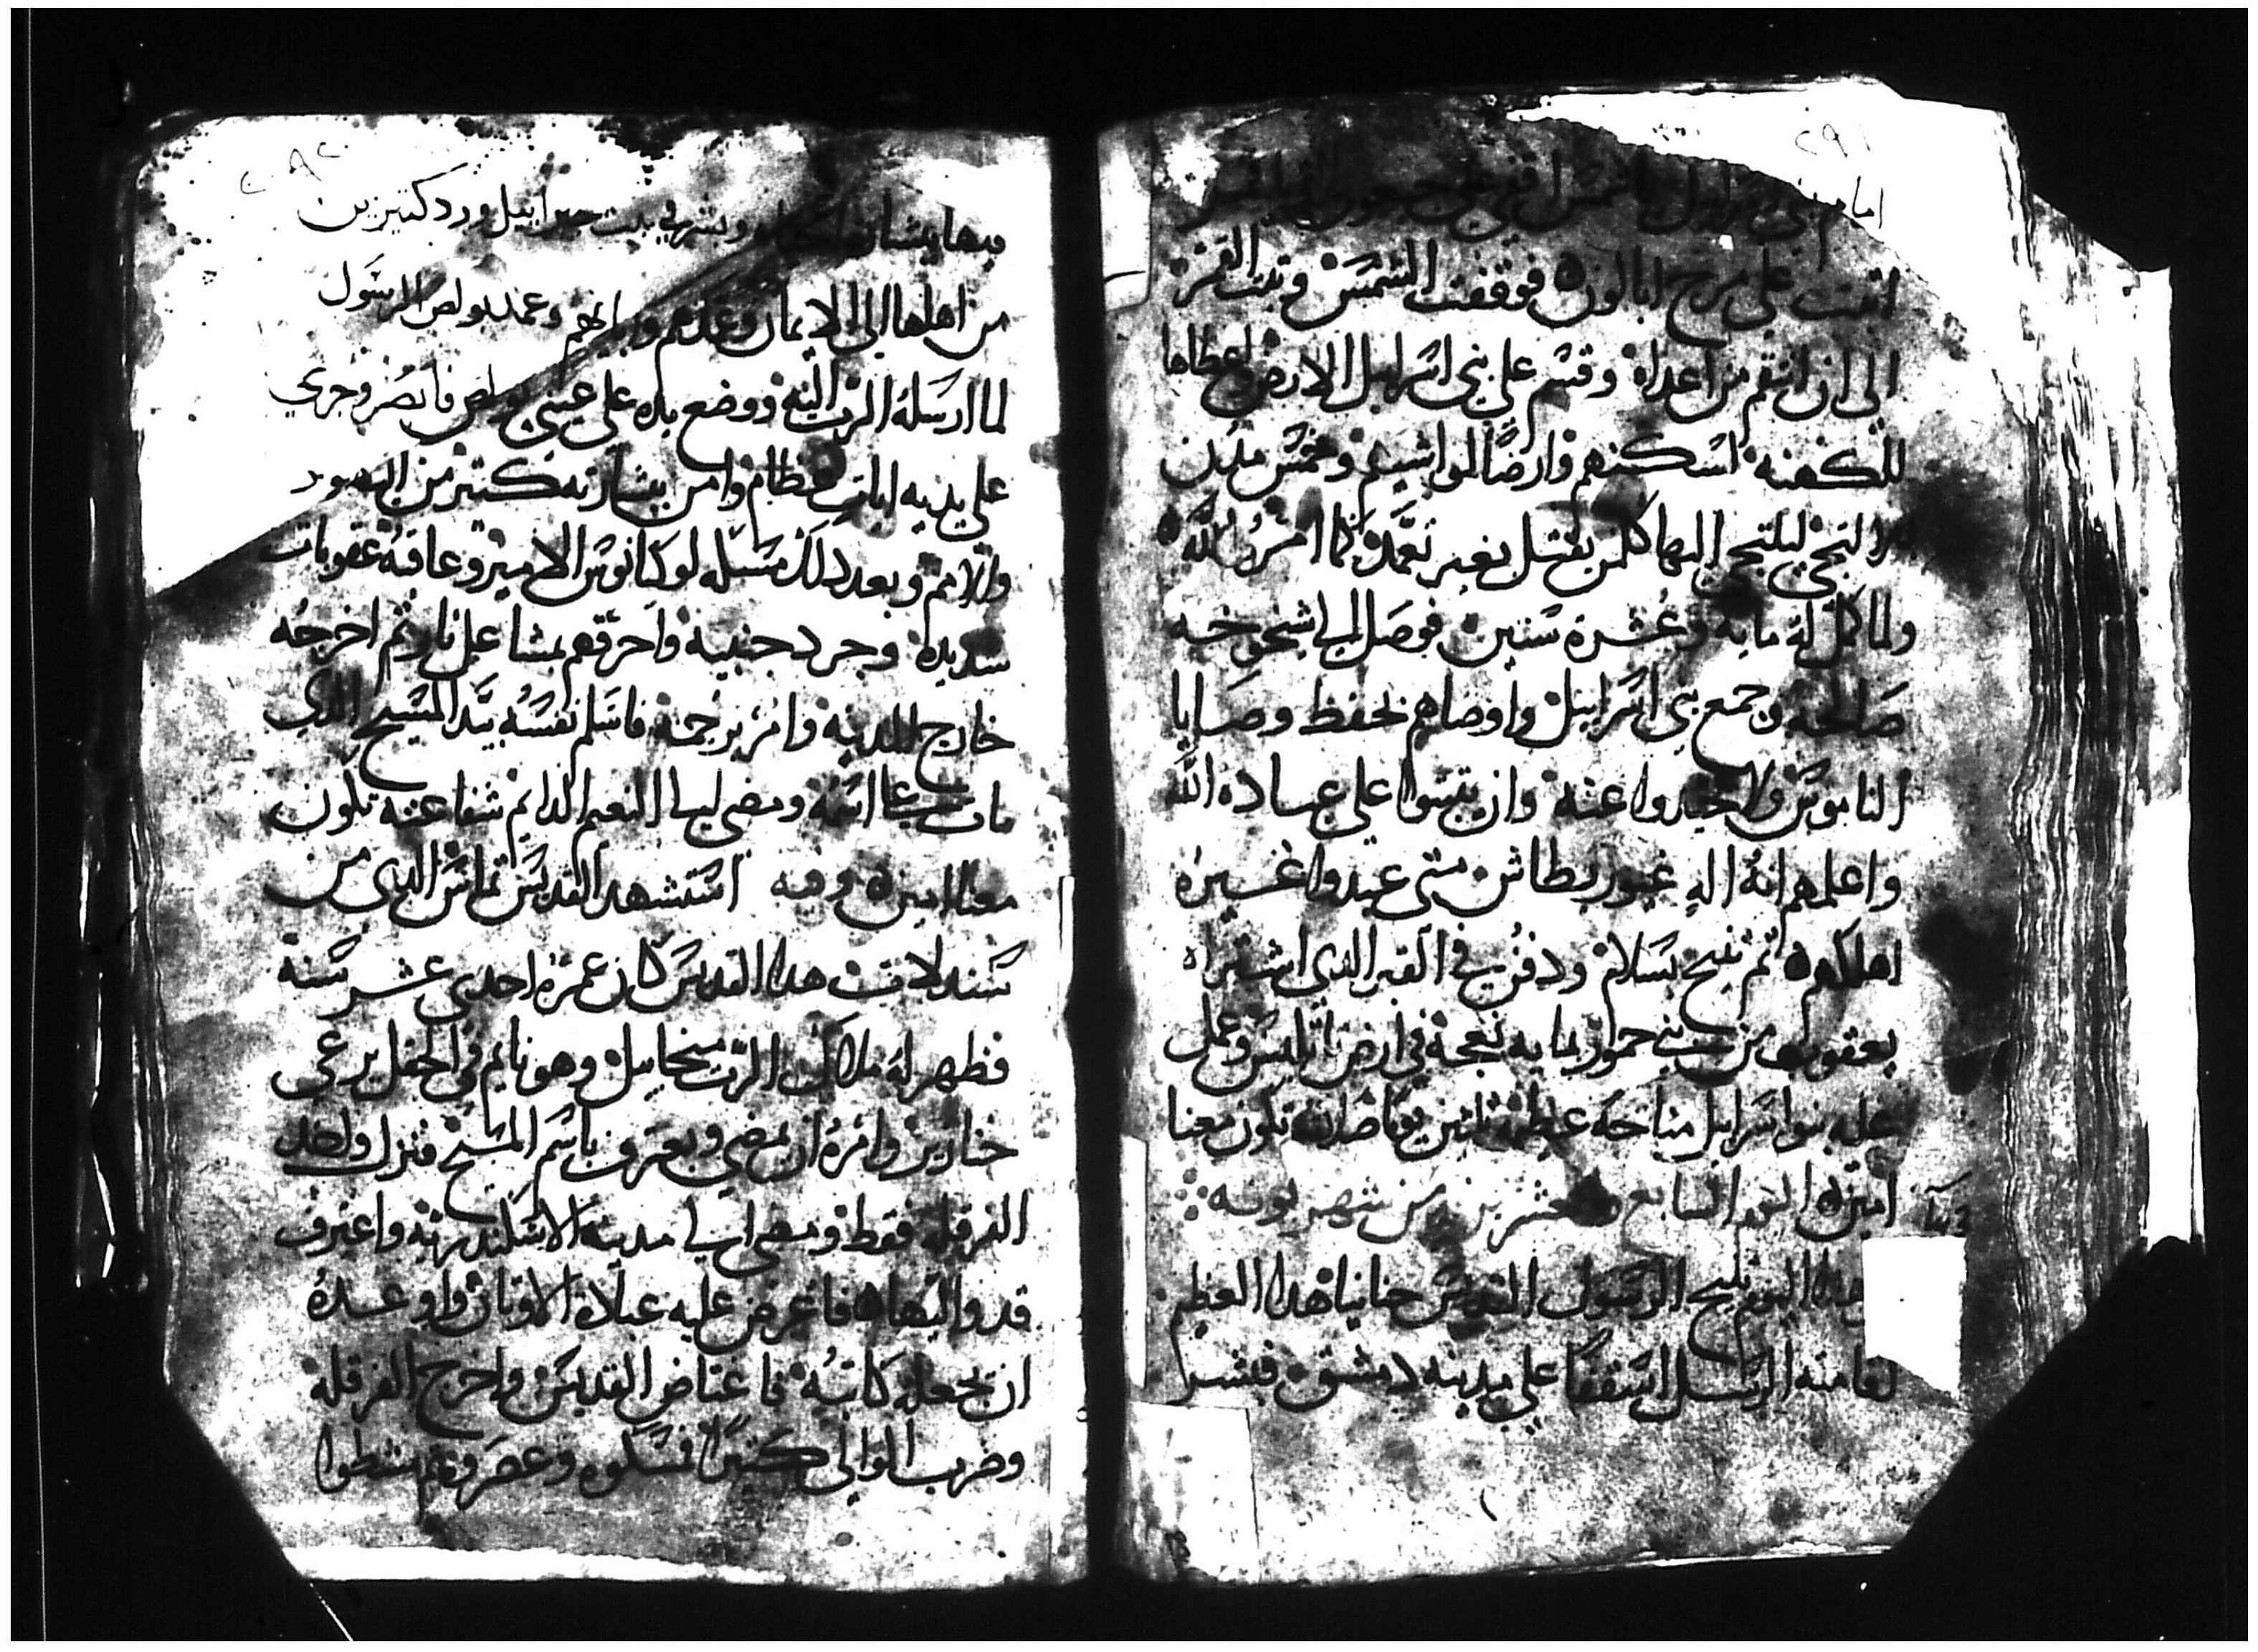 ٢٩١
امام بني اسراييل يا شمس قفي علي جبعون وانت يا قمر
اثبت على مرج ايالون فوقفت الشمس وثبت القمر
الى ان انتقم من اعداه وقسم على بني اسراييل الارض واعطاها
للكهنه اسكنهم وارضًا لمواشيهم وخمس مدن
للملتجي ليلتجي اليها كلمن يقتل بغير تعمد كما امر الله
ولما كمل له مايه وعشرة سنين فوصل الى شيخوخه
صالحه وجمع بني اسراييل واوصاهم بحفظ وصايا
الناموس ولا يحيدوا عنه وان يثبتوا على عباده الله
واعلمهم انه اله غيور بطاش متى عبدوا غيره
اهلكهم ثم تنيح بسلام ودفن في القبر الذي اشتراه
يعقوب من بني حمور بمايه نعجة في ارض نابلس وعمل
عليه بنوا اسراييل مناحه عظيمة ثلثين يوما صلاته تكون معنا
امين اليوم السابع والعشرين من شهر بوونه
هذا اليوم تنيح الرسول القديس حنانيا هذا العظيم
اقامته الرسل اسقفًا على مدينه دمشق فبشر
٢٩٢
فيها ببشارة الحياه وبشر في بيت جبراييل ورد كثيرين
من اهلها الى الايمان وعمدهم وابراهم وعمد بولص الرسول
لما ارسله الرب اليه ووضع يده على عيني بولص فابصر وجري
على يديه ايات عظام وامن ببشارته كثير من اليهود
والامم وبعد ذلك مسكه لوكيانوس الامير وعاقبه عقوبات
شديده وجرد جنبيه واحرقهم بمشاعل نار ثم اخرجه
خارج المدينه وامر برجمه فاسلم نفسه بيد المسيح الذي
مات على اسمه ومضى الى النعيم الدايم شفاعته تكون
معنا امين وفيه استشهد القديس تماس الذي من
شندلات هذا القديس كان عمره احدي عشر سنة
فظهر له ملاك الرب ميخاييل وهو نايم في الحقل يرعي
خنازير وامره ان يمضي ويعترف باسم المسيح فترك والده
الفرقله فقط ومضى الى مدينه الاسكندريه واعترف
قدم واليها فاعرض عليه عبادة الاوثان واوعده
ان يجعله كاتبه فاغتاض القديس واخرج الفرقله
وضرب الوالي كثيرًا فمسكوه وعصروه ثم مشطوا